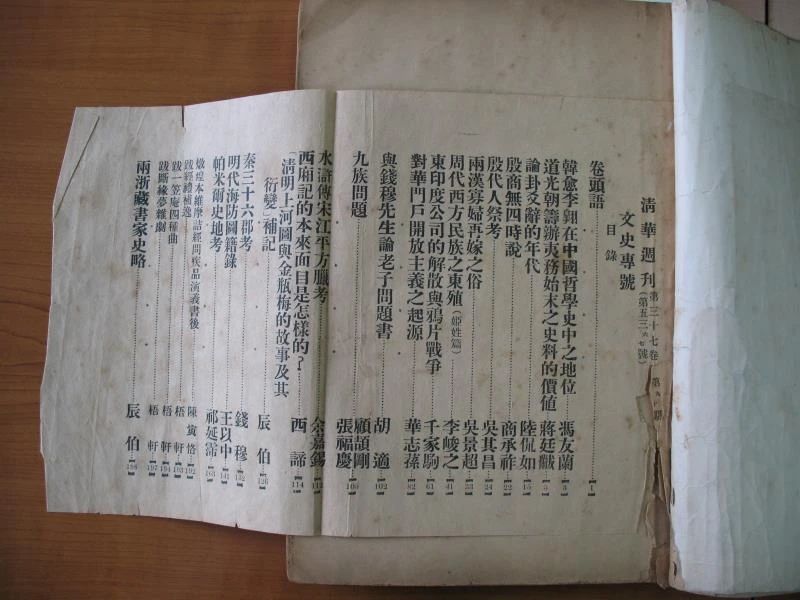 清華週刊 第三十七卷 第九十期
(第五三六七號)
文史專號
目錄
卷頭語 【1】
韓愈李翺在中國哲學史中之地位 馮友蘭 【3】
道光朝籌辦夷務始末之史料的價值 蔣廷黻
論卦爻辭的年代 陸侃如 【15】
殷商無四時說 商承祚 【22】
殷代人祭考 吳其昌 【24】
兩漢寡婦再嫁之俗 吳景超 【33】
周代西方民族之東殖(姬姓篇) 李峻之 【41】
東印度公司的解散與鴉片戰爭 千家駒 【61】
對華門戶開放主義之起源 華志蓀 【82】
與錢穆先生論老子問題書 胡適 【102】
顧頡剛
九族問題 張福慶 【105】
水滸傳宋江平方臘考 余嘉錫 【112】
西廂記的本來面目是怎樣的? 西諦 【114】
「清明上河圖與金瓶梅的故事及其
衍變」補記 辰伯 【126】
秦三十六郡考 錢穆 【132】
明代海防圖籍錄 王以中 【141】
帕米爾史地考 祁延霈 【163】
燉煌本維摩詰經問疾品演義書後 陳寅恪 【192】
跋經禮補逸 梧軒 【193】
跋一笠庵四種曲 梧軒 【194】
跋斷緣夢雜劇 梧軒 【197】
兩浙藏書家史略 辰伯 【198】